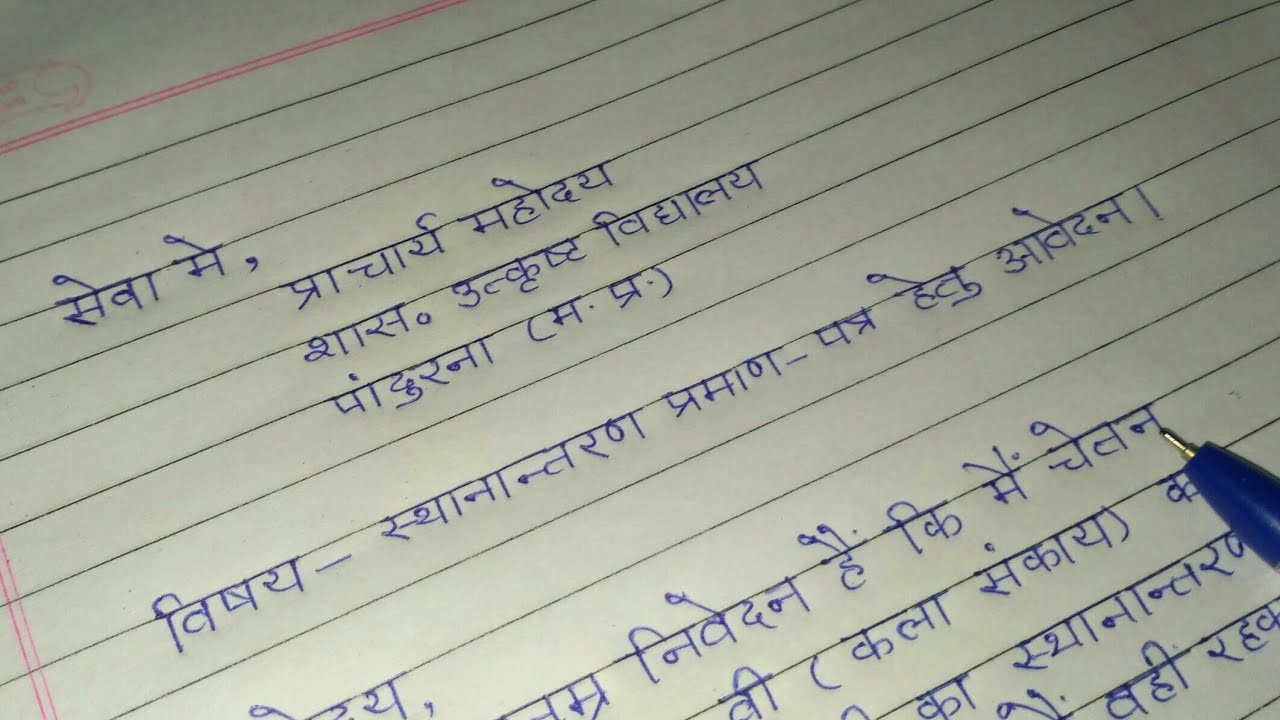 सेवा मे,
प्राचार्य महोदय
शास. उत्कृष्ट विद्यालय
पांढुरना (म. प्र.)
विषय - स्थानान्तरण प्रमाण - पत्र हेतु आवेदन।
निवेदन हैं कि मैं चेतन
वी (कला संकाय)
का स्थानान्तरण
वहीं